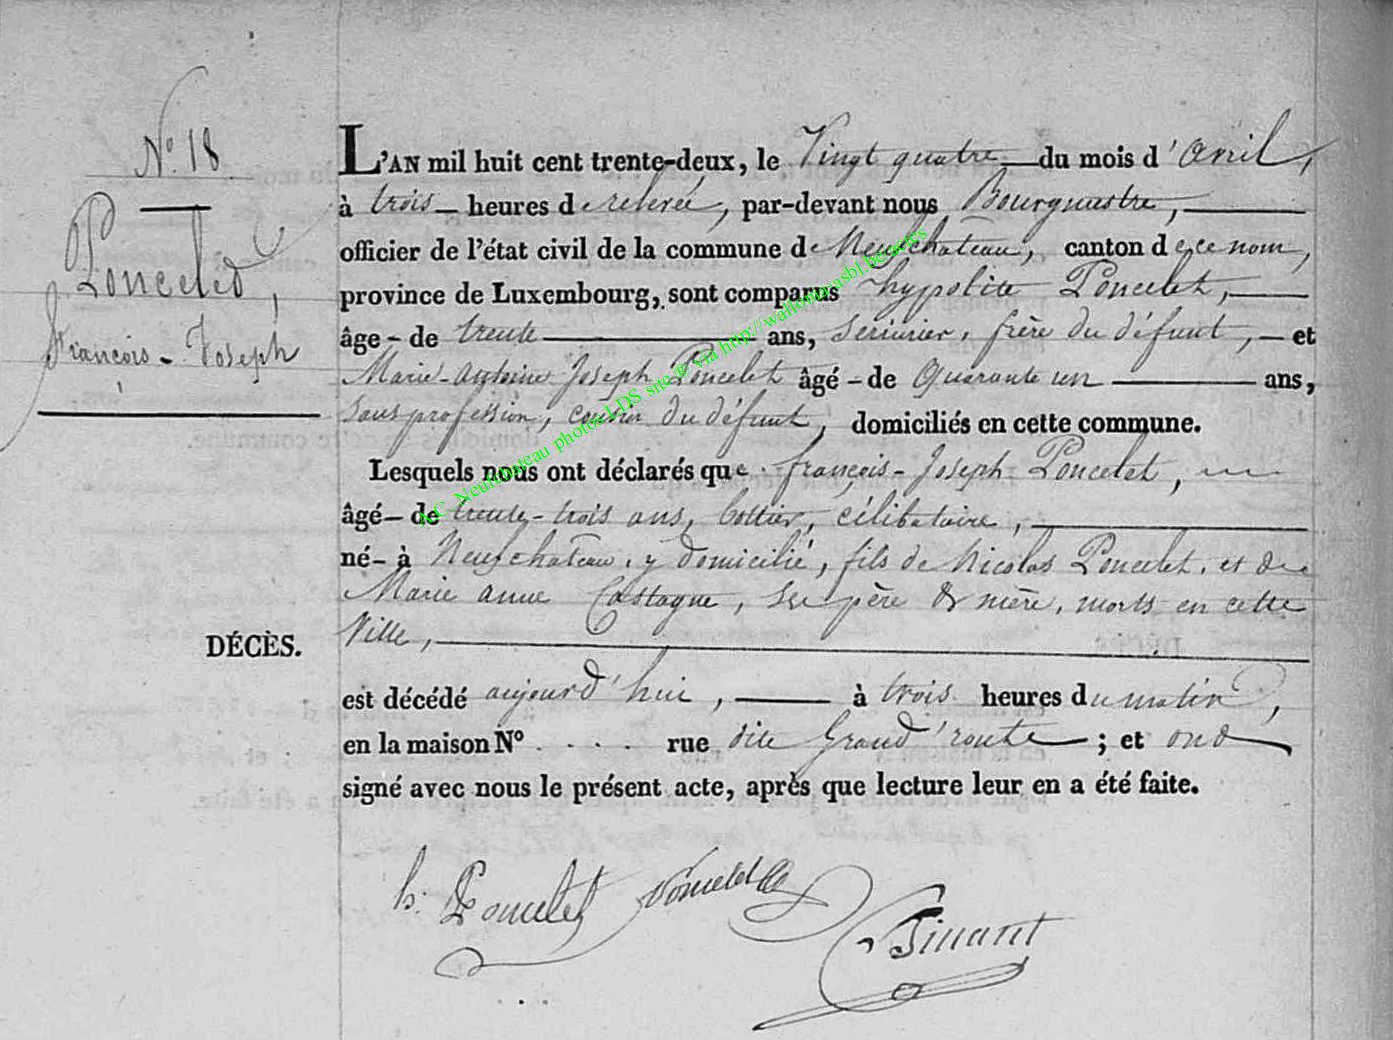 N.° 18
Poncelet,
François-Joseph
L'AN mil huit cent trente-deux, le Vingt quatre du mois d'avril,
à trois heures de relevée, par-devant nous Bourgmestre,
officier de l'état civil de la commune de Neufchateau, canton de ce nom,
province de Luxembourg, sont comparus hypolite Poncelet,
âgé - de trente ans, serrurier, frère du défunt, - et
Marie-antoine Joseph Poncelet âgé - de Quarante un ans,
sans profession, cousin du défunt, domiciliés en cette commune.
Lesquels nous ont déclarés que françois-Joseph Poncelet,
âgé - de trente-trois ans, célibataire,
né - à Neufchateau, y domicilié, fils de Nicolas Poncelet, et de
Marie anne Castagne, ses père & mère, morts en cette
Ville,
DÉCÈS.
est décédé aujourd'hui, à trois heures du matin,
en la maison N° . . . . rue dite Grand'route ; et ont
signé avec nous le présent acte, après que lecture leur en a été faite.
h. Poncelet Poncelet
Binant
A.C. Neufchâteau photos LDS site @ via http://wallonia.asbl.be/actes